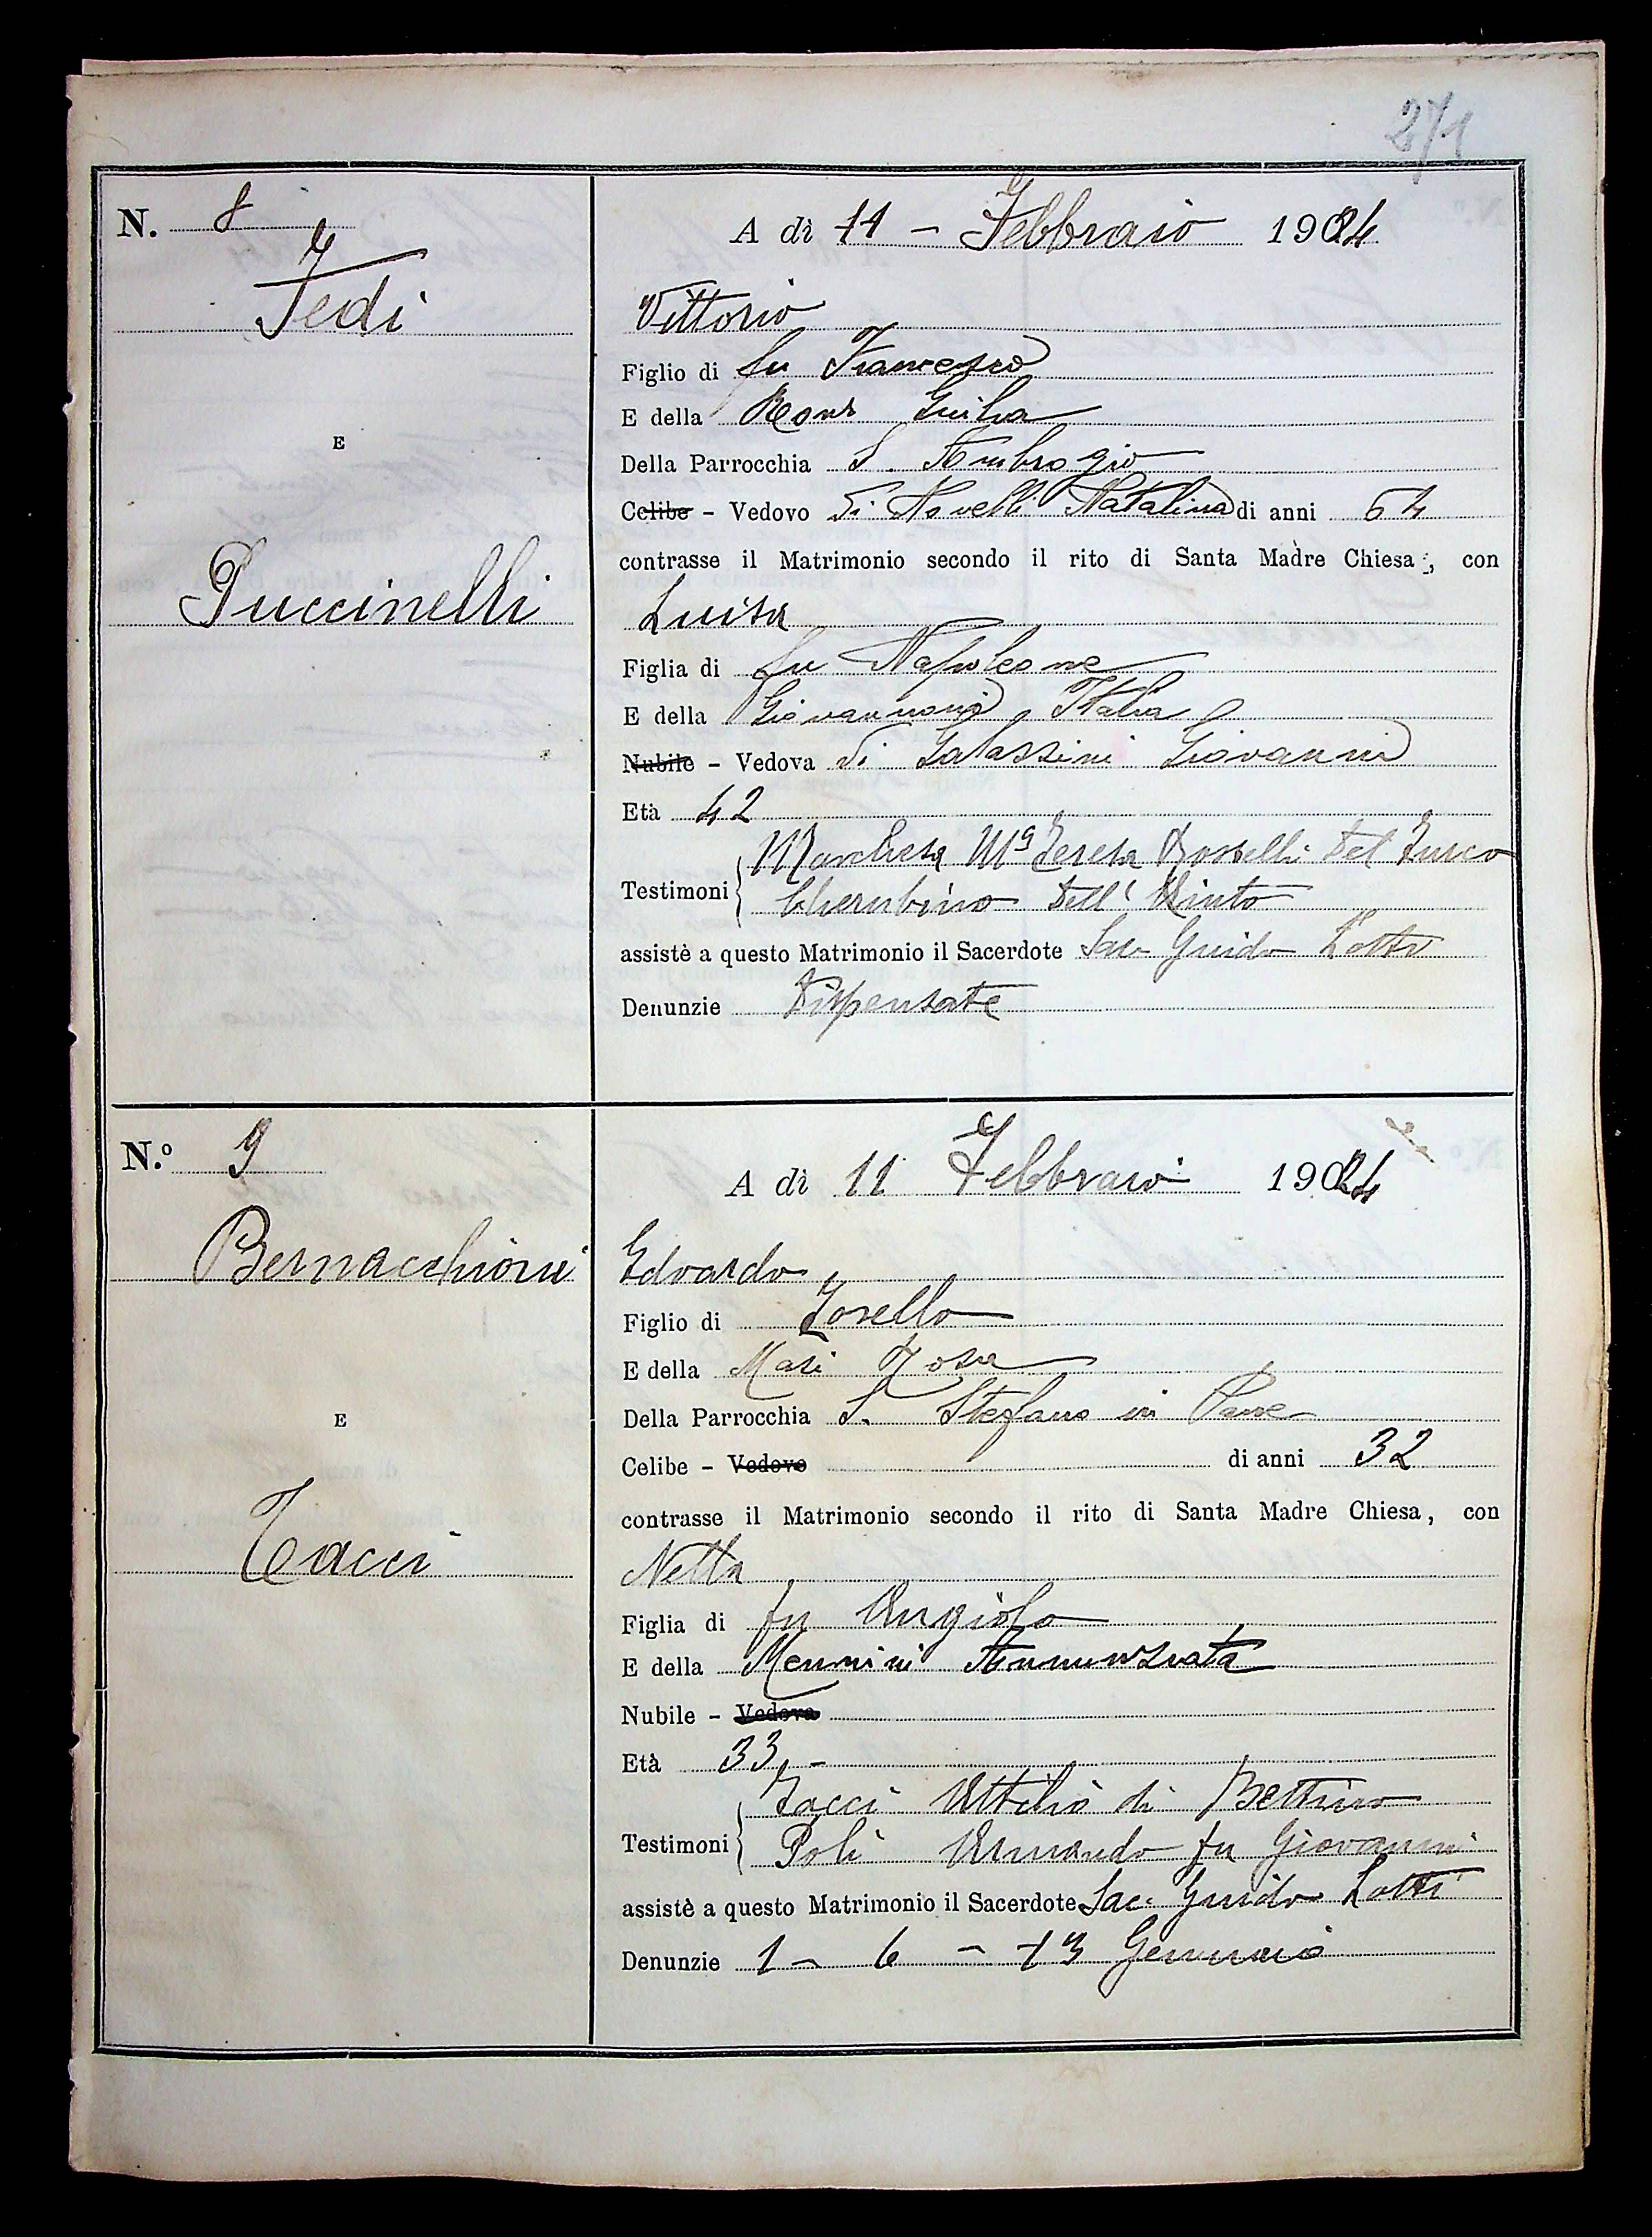 271
N. 8
A dì 11 - Febbraio 1924
Fedi
Vittorio
Figlio di fu Francesco
E della Giulia
E
Della Parrocchia S. Ambrogio
Celibe - Vedovo di Novelli Natalina di anni 64
contrasse il Matrimonio secondo il rito di Santa Madre Chiesa, con
Puccinelli
Luisa
Figlia di fu Napoleone
E della Giovannoni Italia
Nubile - Vedova di Galassini Giovanni
Età 42
Marchesa Mª Teresa Rosselli Del Turco
Testimoni
Cherubino Dell'
assistè a questo Matrimonio il Sacerdote Sac. Guido Lotti
Denunzie Dispensate
N.º 9
A dì 11 Febbraio 1924
Bernacchioni
Edoardo
Figlio di Torello
E della Masi Rosa
Della Parrocchia S. Stefano in Pane
E
Celibe - Vedovo di anni 32
contrasse il Matrimonio secondo il rito di Santa Madre Chiesa, con
Tacci
Nella
Figlia di fu Angiolo
E della Mennini Annunziata
Nubile - Vedova
Età 33 -
Tacci Attilio di Bettino
Testimoni
Poli Armando fu Giovanni
assistè a questo Matrimonio il Sacerdote Sac. Guido Lotti
Denunzie 1 - 6 - 13 Gennaio